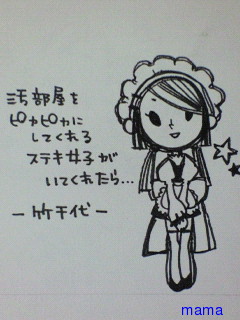 汚部屋を
ピカピカに
してくれる
ステキ女子が
いてくれたら…
－竹千代－
mama